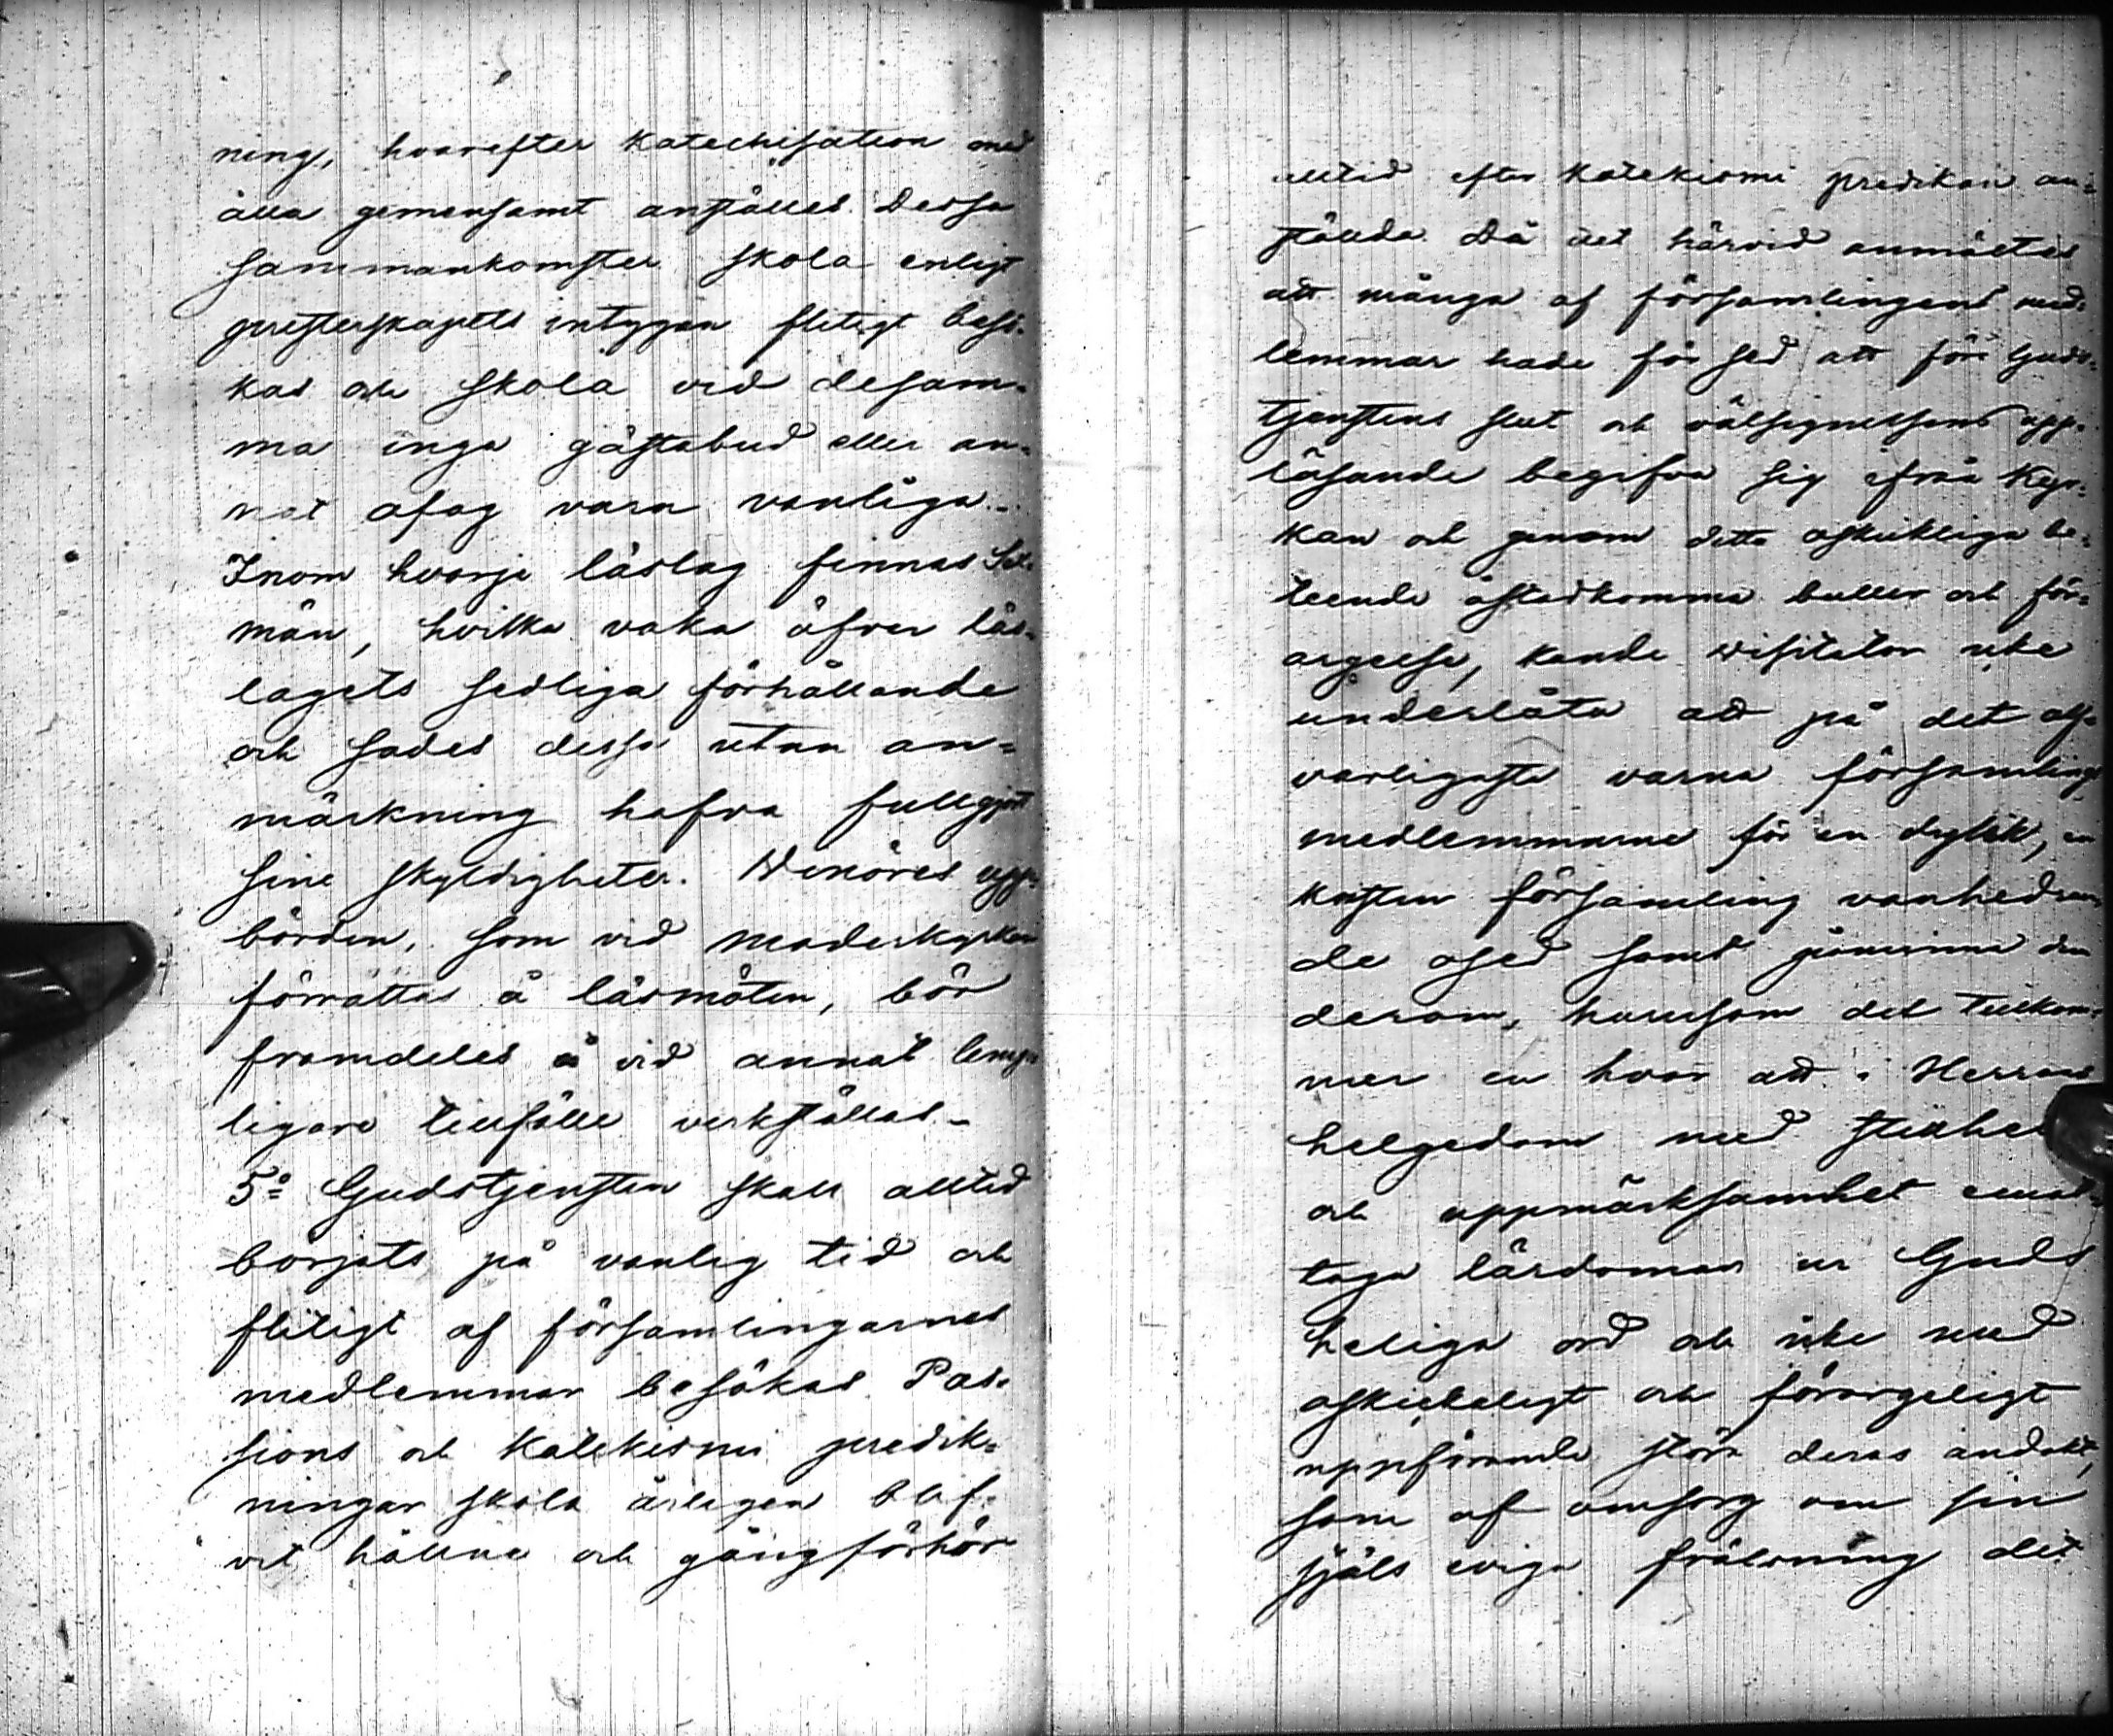 ning, hvarefter Katechisation med
alla gemensamt anställes. Dessa
sammankomster skola enligt
presterskapets intygan flitigt besö-
kas och skola vid desam-
ma inga gästabud eller an-
nat ofog vara vanliga.-
Inom hvarje läslag finnas
män, hvilka vaka öfver läs-
lagets sedliga förhållande
och sades desse utan an-
märkning hafva fullgjort
sine skyldigheter. upp-
börden, som vid moderkyrkan
förrättas å läsmöten, bör
framdeles å vid annat lemp-
ligare tillfälle verkställas.-
5º Gudstjensten skall alltid
börjats på vanlig tid och
flitigt af församlingarnes
medlemmar besökas. Pas-
sions och Katekismi predik-
ningar skola årligen blif-
vit hållne och gångförhör
alltid efter Katekismi predikan an-
stälda. Då det härvid anmältes
att många af församlingens med-
lemmar hade för sed att före Guds-
tjenstens slut och välsignelsens upp-
läsande begifva sig ifrån Kyr-
kan och genom detta oskickliga be-
teende åstadkomma buller och för-
argelse, kunde visitator icke
underlåta att på det all-
varligaste varna församlings
medlemmarne för en dylik, en
kristen församling vanhedran-
de osed samt påminna dem
derom, hurusom det tillkom-
mer en hvar att i Herrans
helgedom med stillhet
och uppmärksamhet emot-
taga lärdomar ur Guds
heliga ord och icke med
oskickeligt och förargeligt
uppförande störa deras andakt,
som af omsorg om sin
själs eviga frälsning dit